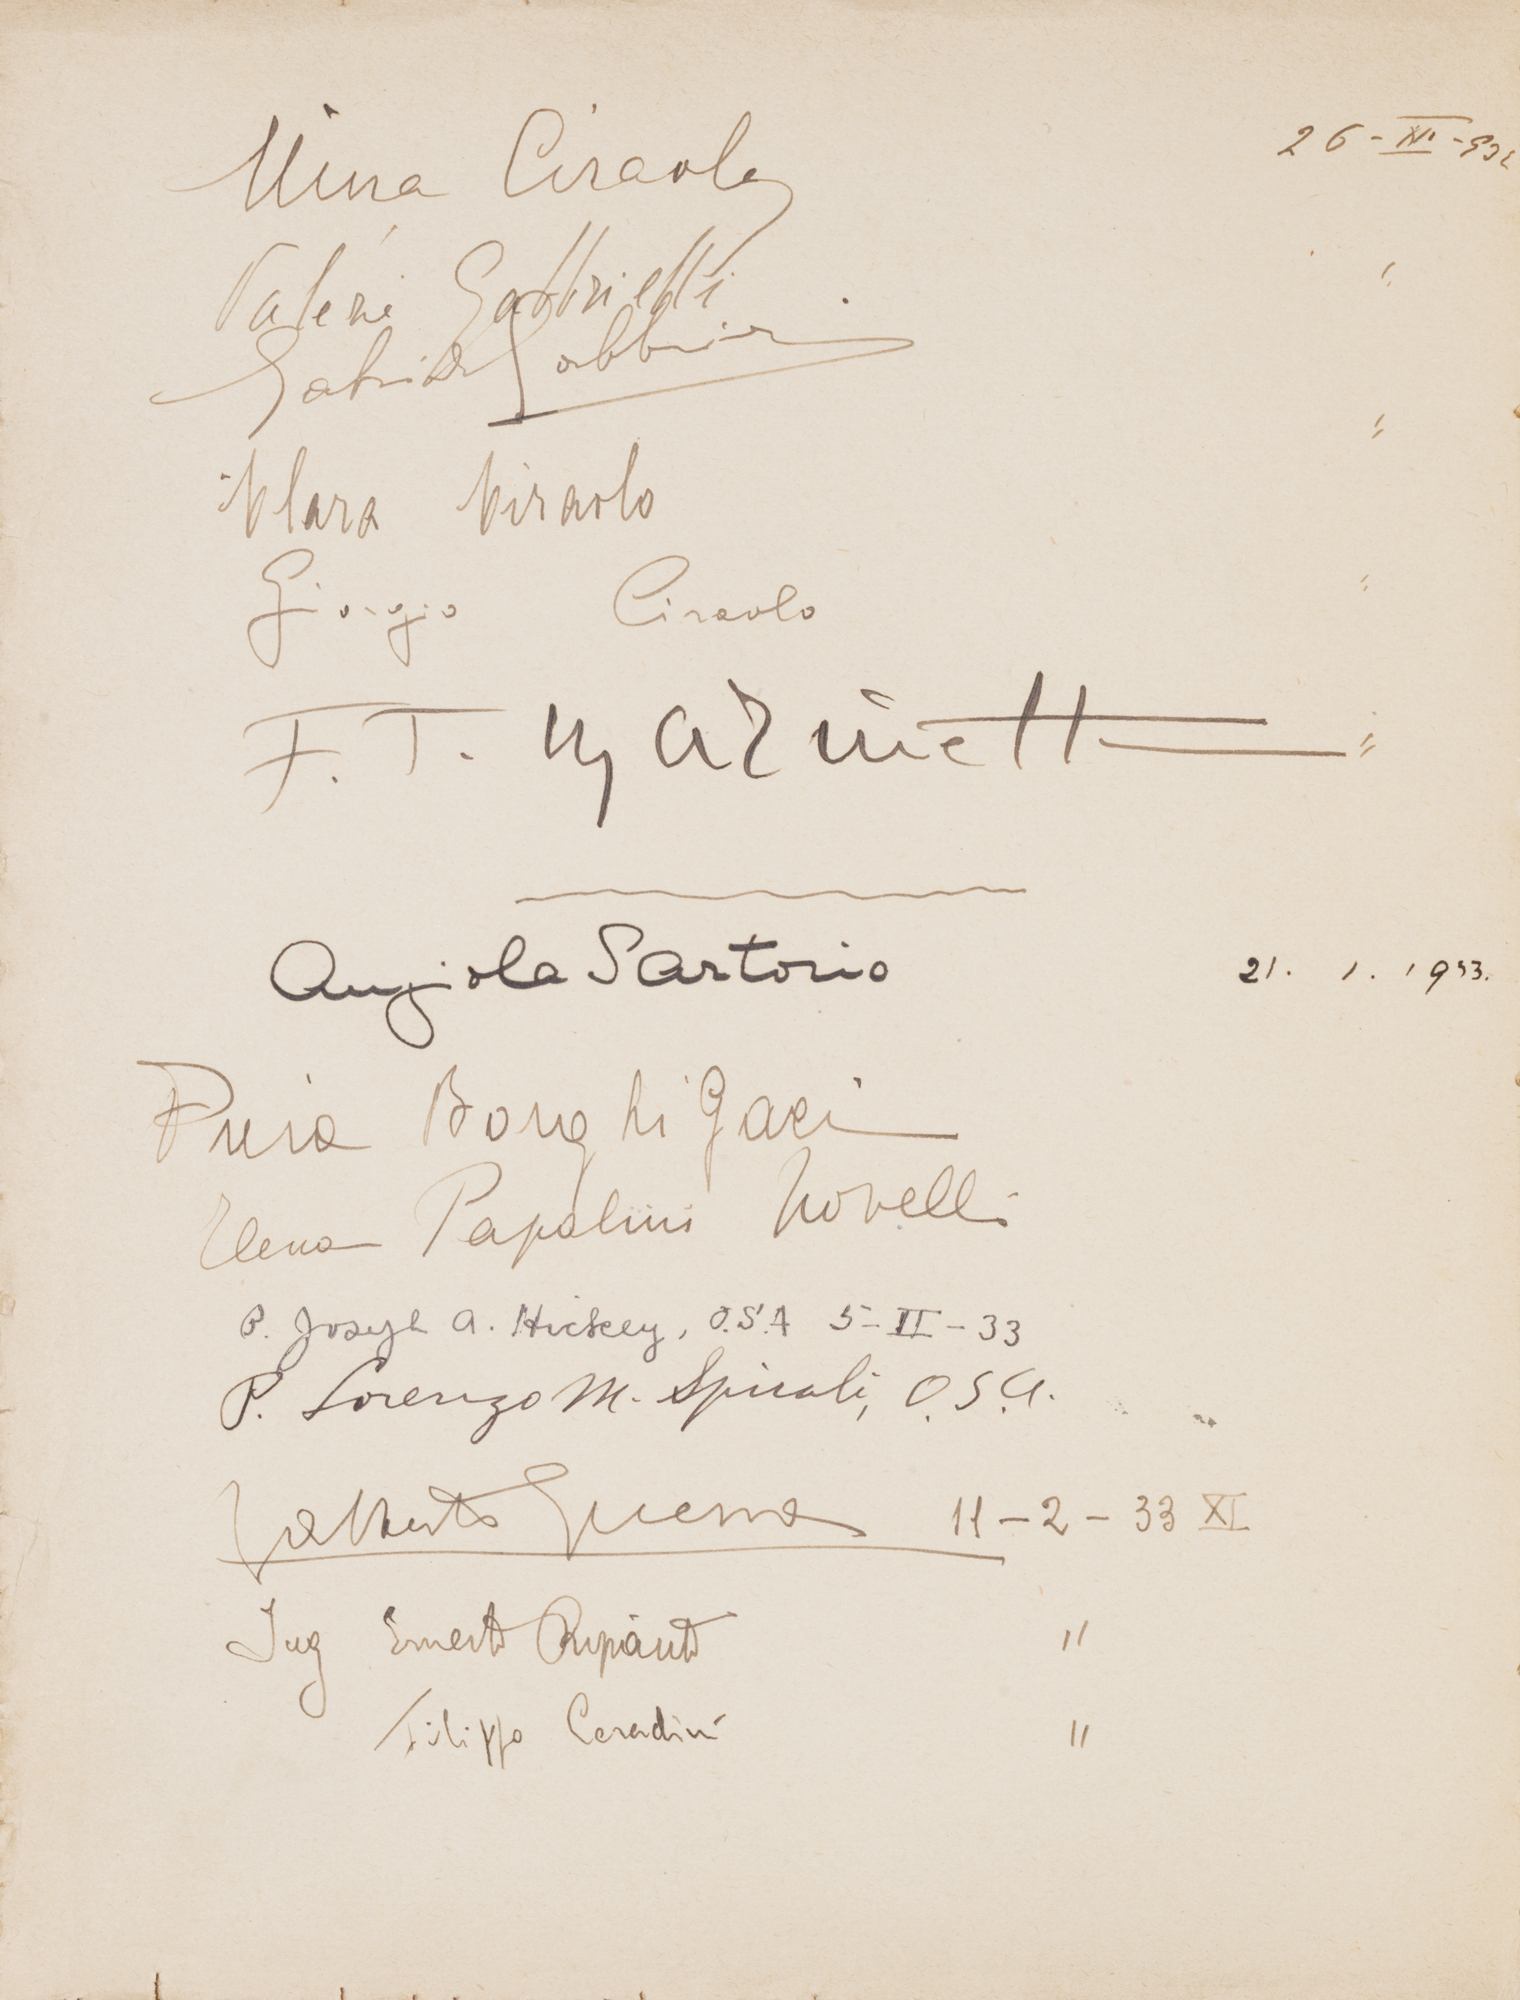 Mina Ciraolo 26-XII-932
Valeri Gabbrielli "
"
Clara Ciraolo
Giorgio Ciraolo "
F. T. Marinetti "
Angiola Sartorio 21. 1. 1933.
Piera Borghi Gaci
Elena Papalini Novelli
P. Joseph A. Hickey, O.S.A 5-II-33
P. Lorenzo M. Spirali, O.S.A.
Galberto Guerra 11-2-33 XI
Ing Ernesto "
Filippo Ceradini "